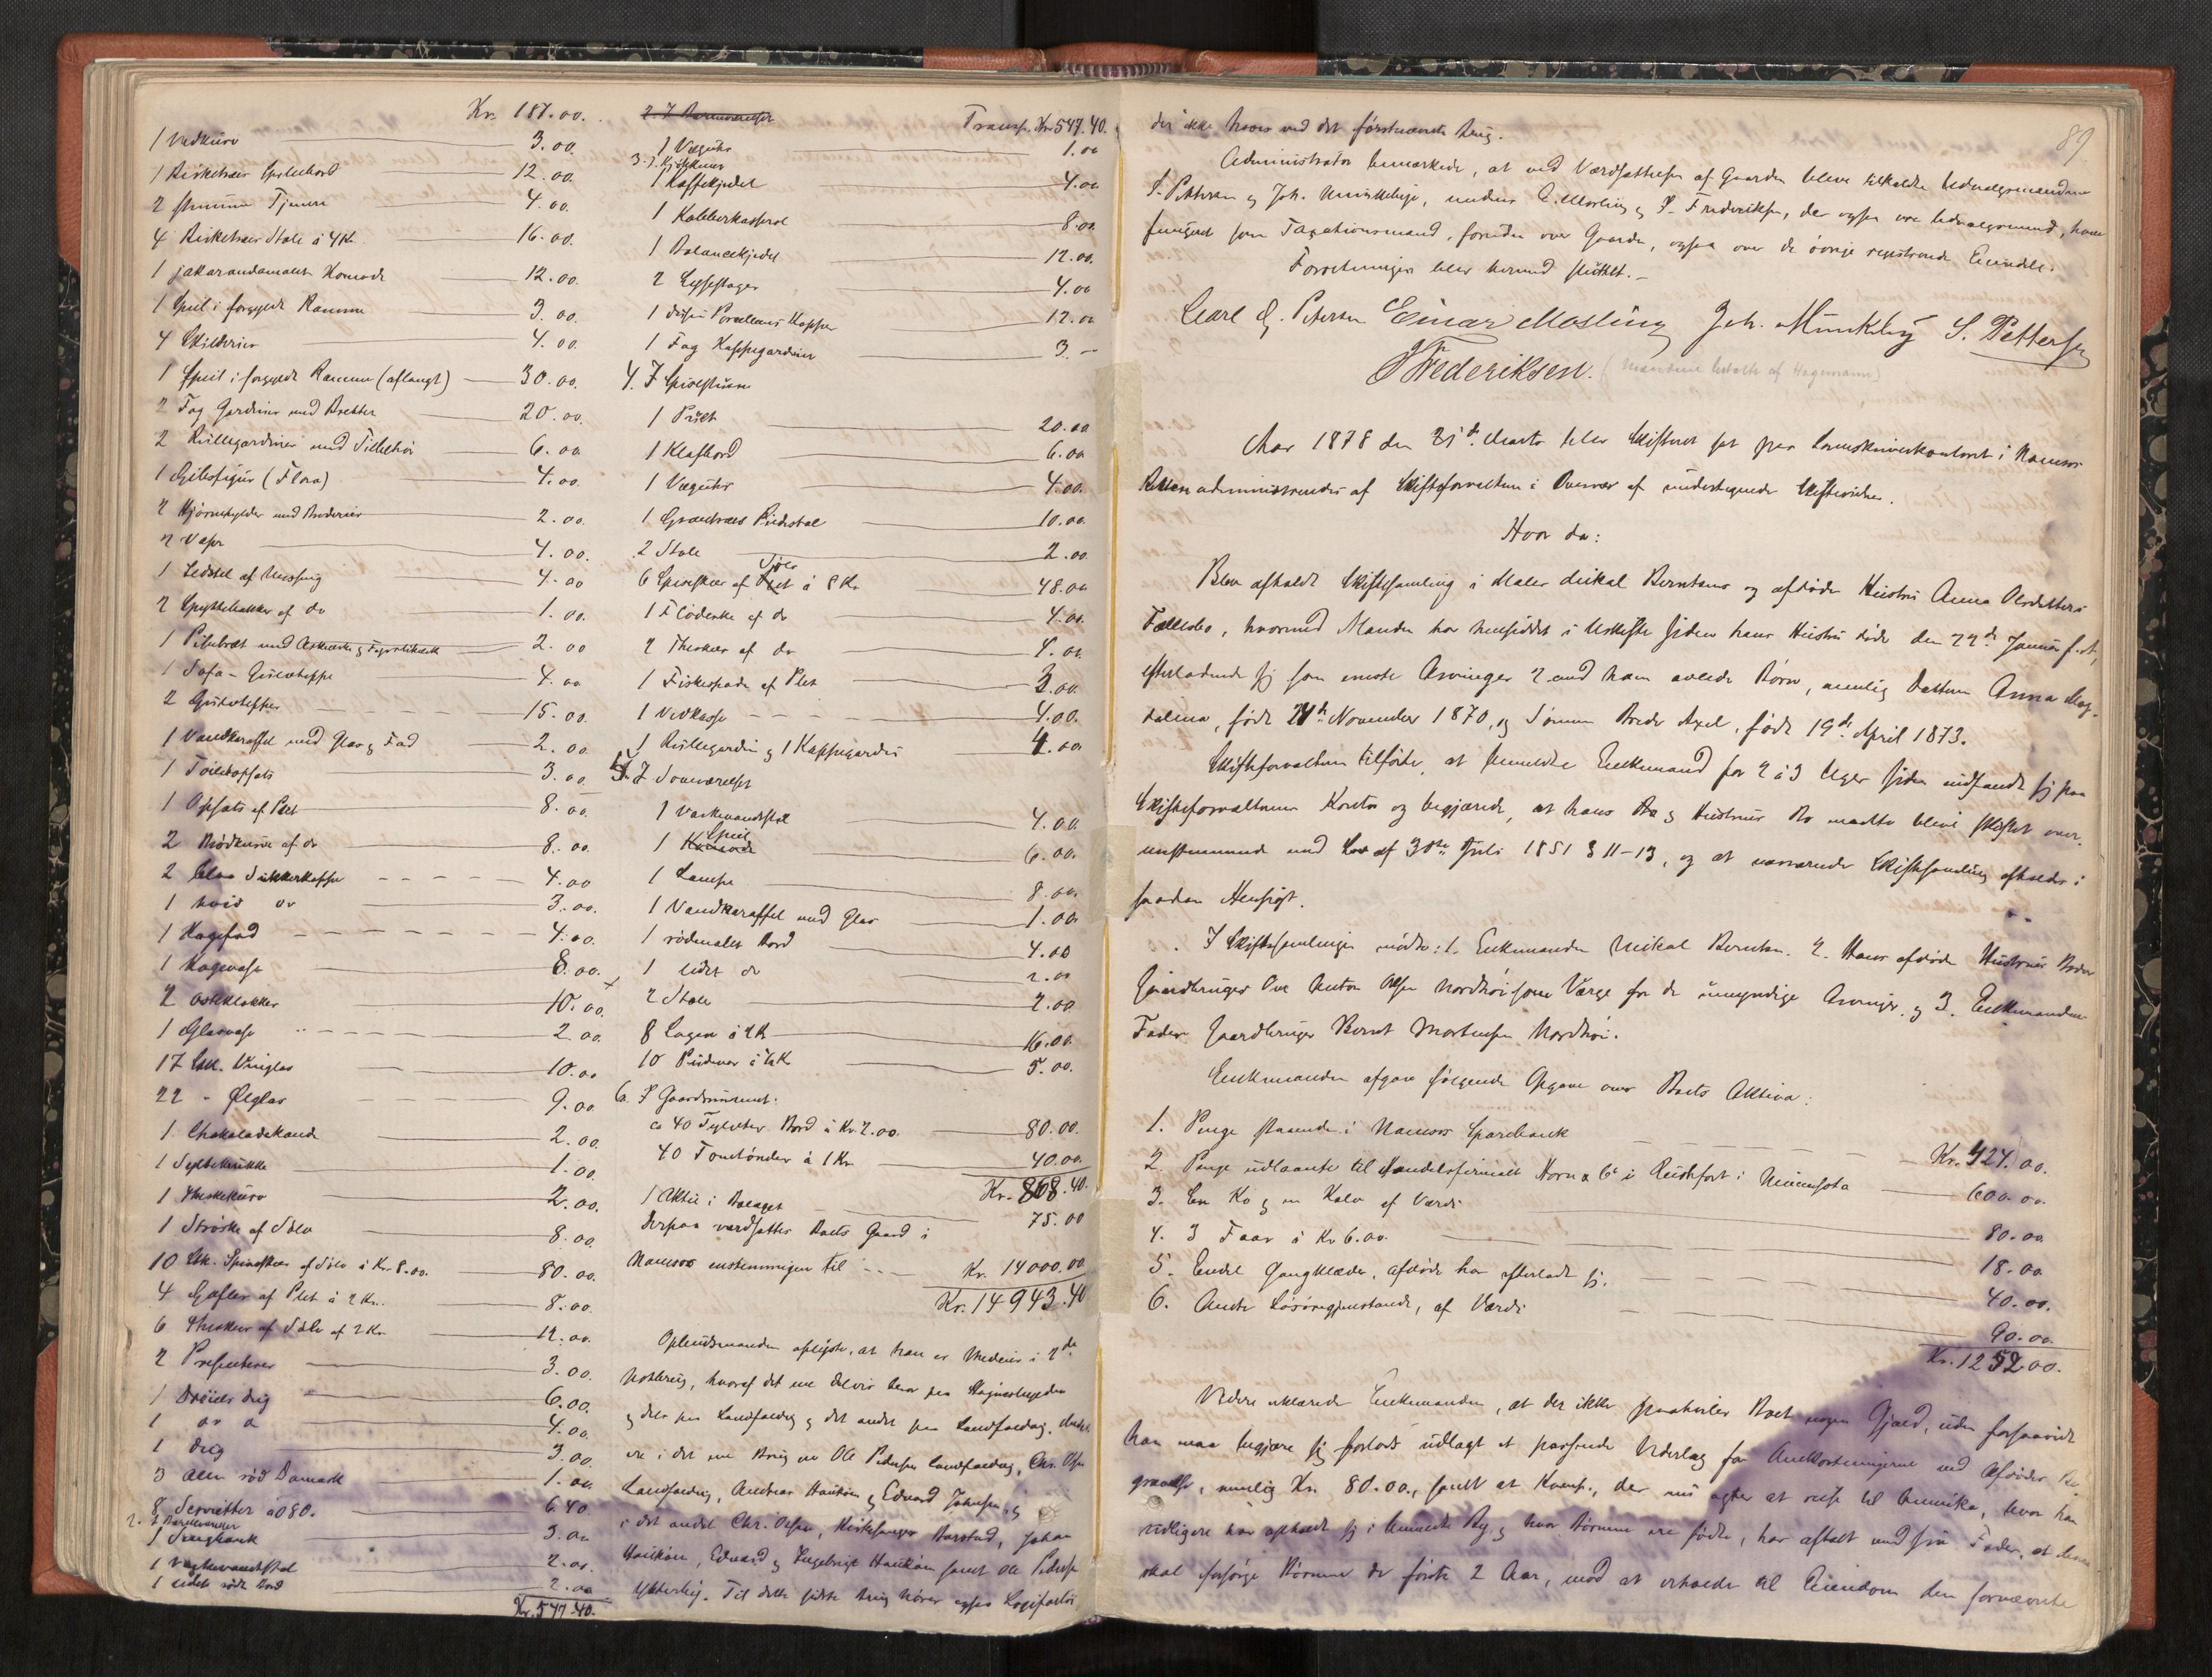 Kr. 187.00.
1 Vedkurv 3.00
1 Birketræes Spillebord 12.00.
2 stumme Tjenere 4.00.
4 Birketræes Stole à 4 Kr. 16.00.
1 jakarandamalet Komode 12.00.
1 Speil i forgyldt Ramme 3.00.
4 Skilderier 4.00.
1 Speil i forgyldt Ramme (aflangt) 30.00.
2 Fag Gardiner med Bretter 20.00.
2 Rullegardiner med Tilbehör 6.00
1 Gibsfigur (Flora) 4.00.
2 Hjörnehylder med Broderier 2.00.
2 Vaser 4.00.
1 Ildstel af Messing 4.00
2 Spyttebakker af do 1.00.
1 Pibebræt med Askebæger & Fyrstikstativ 2.00
1 Sofa-Gulvteppe 4.00
2 Gulvtepper 15.00.
1 Vandkaraffel med Glas & Fad 2.00
1 Toiletopsats 3.00
1 Opsats af Plet 8.00.
2 Brödkurve af do 8.00.
2 blaa Sukkerkopper 4.00
1 hvid do 3.00.
1 Kagefad 4.00.
1 Kagevase 8.00.
2 Osteklokker 10.00.
1 Glasvase 2.00.
17 Stk. Vinglas 10.00
22 - Ölglas 9.00
1 Chokoladekande 2.00.
1 Syltekrukke 1.00.
1 Theskekurv 2.00.
1 Ströske af Sölv 8.00.
10 Stk. Spiseskeer af Sölv à Kr. 8.00. 80.00.
4 Gafler af Plet à 2 Kr. 8.00.
6 Theskeer af Sölv af 2 Kr. 12.00.
2 Presenterer 3.00.
1 Dreiels dug 6.00.
1 do do 4.00.
1 dug 3.00.
3 Alen rød Damask 1.00.
8 Servietter à 0.80. 6.40
2. I Barneværelset
1 Slagbænk 3.00
1 Vaskevandsstol 2.00.
1 lidet rødt Bord 2.00
Kr. 547.40.
2. I Barneværelset Transp. Kr. 547.40.
1 Væguhr 1.00
3. I Kjökken
1 Kaffekjedel 4.00
1 Kobberkasserol 8.00
1 Balancekjedel 12.00.
2 Lysestager 4.00
1 dusin Porcellains Kopper 12.00
1 Fag Kappegardiner 3.-
4. I Spisestuen
1 Pult 20.00
1 Klafbord 6.00
1 Væguhr 4.00.
1 Grantræes Pidestal 10.00.
2 Stole 2.00
6 Spiseskeer af Plet Sölv à 8 Kr 48.00
1 Flödeske af do 4.00.
2 Theskeer af do 4.00.
1 Fiskespade af Plet 3.00.
1 Vedkasse 4.00.
1 Rullegardin & 1 Kappegardin 4.00
5. I Soveværelset
1 Vaskevandsstol 4.00.
1 Komode Speil 6.00.
1 Lampe 8.00.
1 Vandkaraffel med Glas 1.00
1 rödmalet Bord 4.00
1 lidet do 2.00
2 Stole 2.00
8 Lagen à 2 Kr 16.00.
10 Puder à ½ Kr 5.00.
6. I Gaardsrummet:
ca 40 Tylvter Bord à Kr. 2.00. 80.00.
40 Tomtönder à 1 Kr. 40.00.
Kr. 868.40.
1 Aktie i Bolaget 75.00
Derpaa værdsattes Boets Gaard i
Namsos enstemmigen til Kr. 14000.00
Kr. 14943.40
Opbudsmanden oplyste, at han er Medeier i 2de
Notbrug, hvoraf det ene delvis beror paa
& dels paa Landfaldög & det andet paa Landfaldög.
ere i det ene Brug er Ole Pedersen Landfaldög, Chr. Olsen
Landfaldög, Andreas Hauköen & Edvard Johnsen, &
i det andet Chr. Olsen, Kirkesanger Barstad, Johan
Hauköen, Edvard & Ingebrigt Hauköen samt Ole Pedersen
Til dette sidste Brug hörer ogsaa
89.
der ikke haves ved det förstnævnte Brug.
Administrator bemærkede, at ved Værdsættelsen af Gaarden bleve tilkaldte Udvalgsmændene
S. Pettersen og Joh. Munkeby, medens E. Mosling & P. Frederiksen, der ogsaa ere Udvalgsmænd, have
fungeret som Taxationsmænd, foruden over Gaarden, ogsaa over de övrige registrerede Eiendele.
Forretningen blev hermed sluttet.-
Carl J. Petersen Einar Mosling Joh. Munkeby S. Pettersen
P Frederiksen. (Mændene betalte af Hagemann)
Aar 1878 den 21de Marts blev Skifteret sat paa Sorenskriverkontoret i Namsos
Retten administreredes af Skifteforvalteren i Overvær af undertegnede Skiftevidner.
Hvor da:
Blev afholdt Skiftesamling i Maler Mikal Berntsens og afdøde Hustru Anna Olsdatters
Fællesbo, hvormed Manden har hensiddet i Uskifte siden hans Hustru døde den 22de Januar f. A.,
efterladende sig som eneste Arvinger 2 med ham avlede Börn, nemlig Datteren Anna Mag-
dalina, født 24de November 1870, & Sønnen Axel, født 19de April 1873.
Skifteforvalteren tilförte, at bemeldte Enkemand for 2 à 3 Uger siden indfandt sig paa
Skifteforvalterens Kontor og begjærede, at hans & Hustrues Bo maatte blive skiftet over-
ensstemmende med Lov af 30te Juli 1851 § 11-13, og at nærværende Skiftesamling afholdes i
saadan Hensigt.
I Skiftesamlingen mødte: 1. Enkemanden Mikal Berntsen. 2. Hans afdøde Hustrues Broder
Gaardbruger Ove Anton Olsen Nordhöi som Værge for de umyndige Arvinger & 3. Enkemandens
Fader Gaardbruger Bernt Mortensen Nordhöi.
Enkemanden afgav følgende Opgave over Boets Aktiva:
1. Penge staaende i Namsos Sparebank Kr. 424.00.
2. Penge udlaante til Handelsfirmaet Horn & Co i Rushfort i Minnesota 600.00
3. En Ko & en Kalv af Værdi 80.00
4. 3 Faar à Kr 6.00. 18.00
5. Endel Gangklæder, afdøde har efterladt sig. 40.00.
6. Andre Løsöregjenstande, af Værdi 90.00
Kr. 1252.00.
Videre erklærede Enkemanden, at der ikke paahviler Boet nogen Gjæld, uden forsaavidt
han maa begjære sig forlods udlagt et passende Vederlag for Omkostningerne ved Afdødes Be-
gravelse, nemlig Kr. 80.00, samt at Komp., der nu agter at reise til Amerika, hvor han
tidligere har opholdt sig i bemeldte By & hvor Børnene ere fødte, har aftalt med sin Fader, at denne
skal forsörge Börnene de förste 2 Aar, mod at erholde til Eiendom den fornævnte